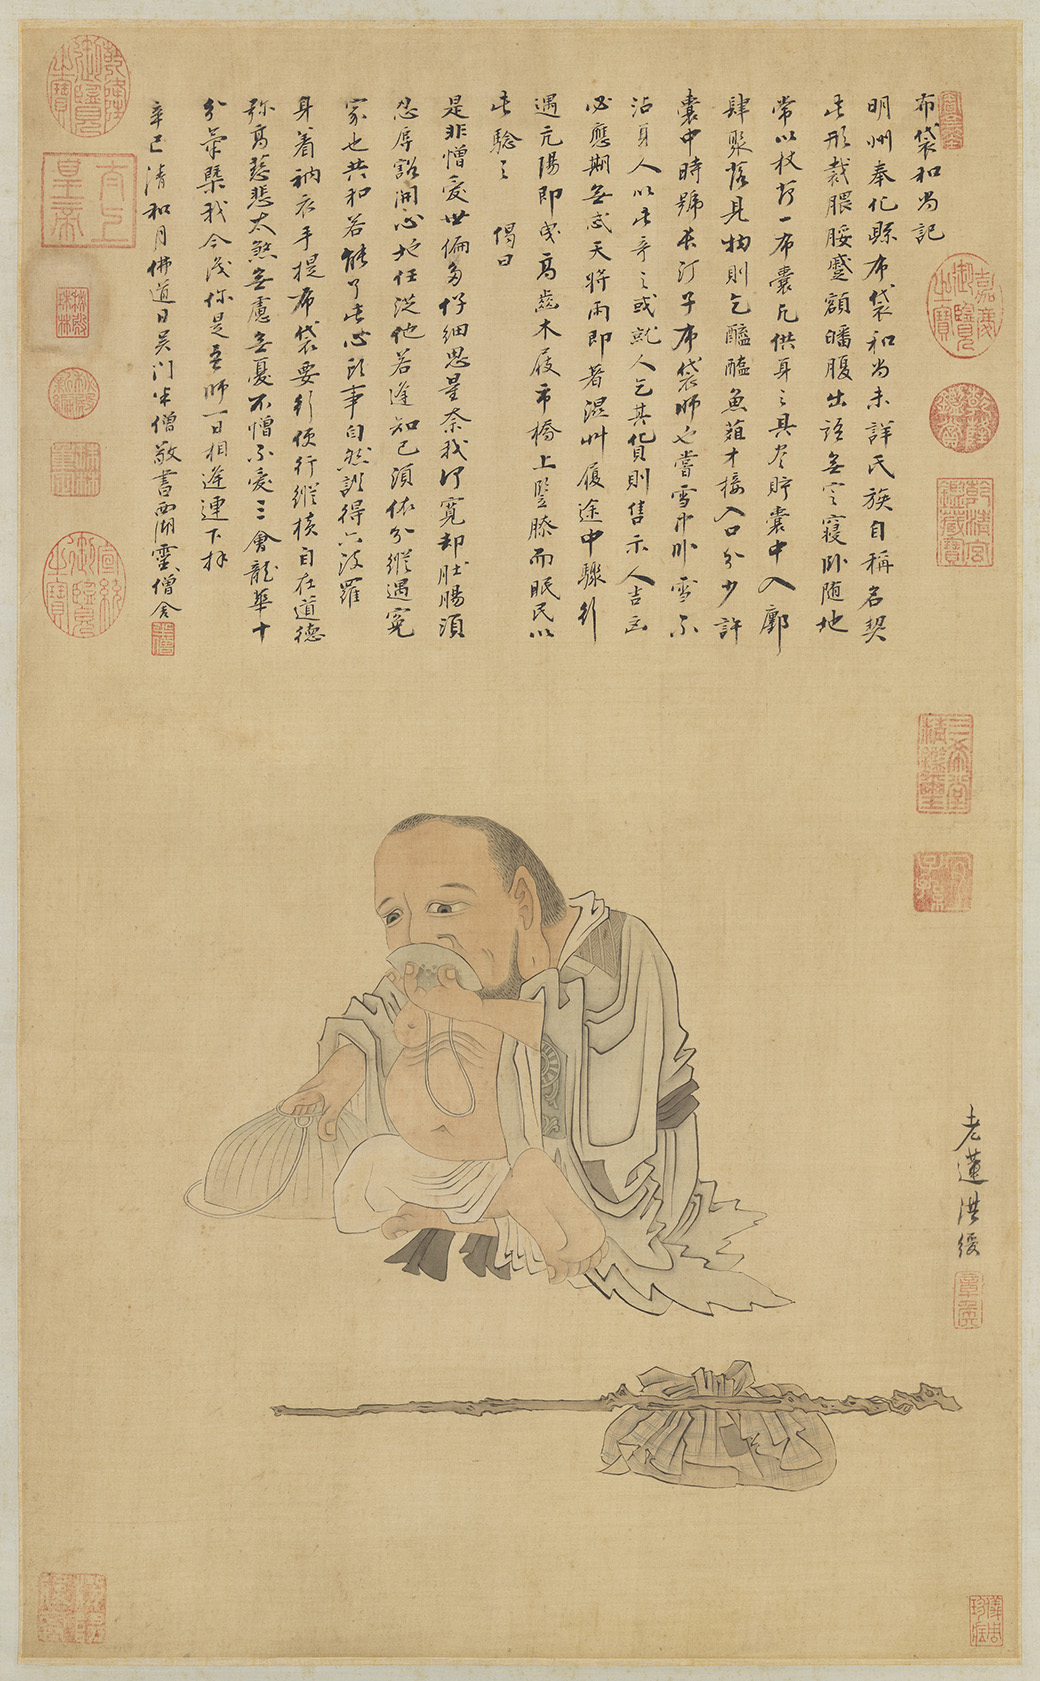 布袋和尚記
明州奉化縣布袋和尚未詳氏族自稱名契
此形裁腲脮蹙額皤腹出語無定寢臥隨地
常以杖荷一布囊凡供身之具盡貯囊中入鄽
肆聚落見物則乞醯醢魚葅才接入口分少許
囊中時號長汀子布袋師也嘗雪中臥雪不
沾身人以此奇之或就人乞其貨則售示人吉凶
必應期無忒天將雨即著濕艸履途中驟行
遇亢陽即曳高齒木屐市橋上豎膝而眠民以
此驗之 偈曰
是非憎愛世偏多仔細思量奈我何寬却肚腸須
忍辱豁開心地任從他若逢知己須依分縱遇冤
家也共和若能了此心頭事自然證得六波羅
身着衲衣手提布袋要行便行縱橫自在道德
弥高慈悲太煞無慮無憂不憎不愛三會龍華十
分 我今 你是吾師一日相逢連下拜
辛巳清和月佛道日吳門半僧敬書西湖靈 僧舍
老蓮洪綬
嘉慶御覽之寶
乾隆鑑賞
乾清宮鑑藏寶
三希堂精鑑璽
宜子孫
乾隆御覽之寶
太上皇帝
宣統御覽之寶
章矦